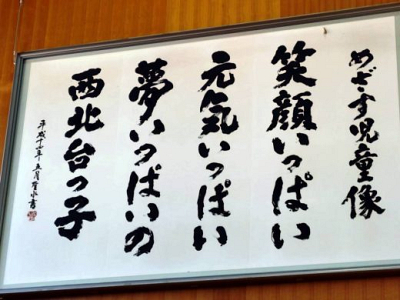 めざす児童像
笑顔いっぱい
元気いっぱい
夢いっぱいの
西北台っ子
平成十四年五月